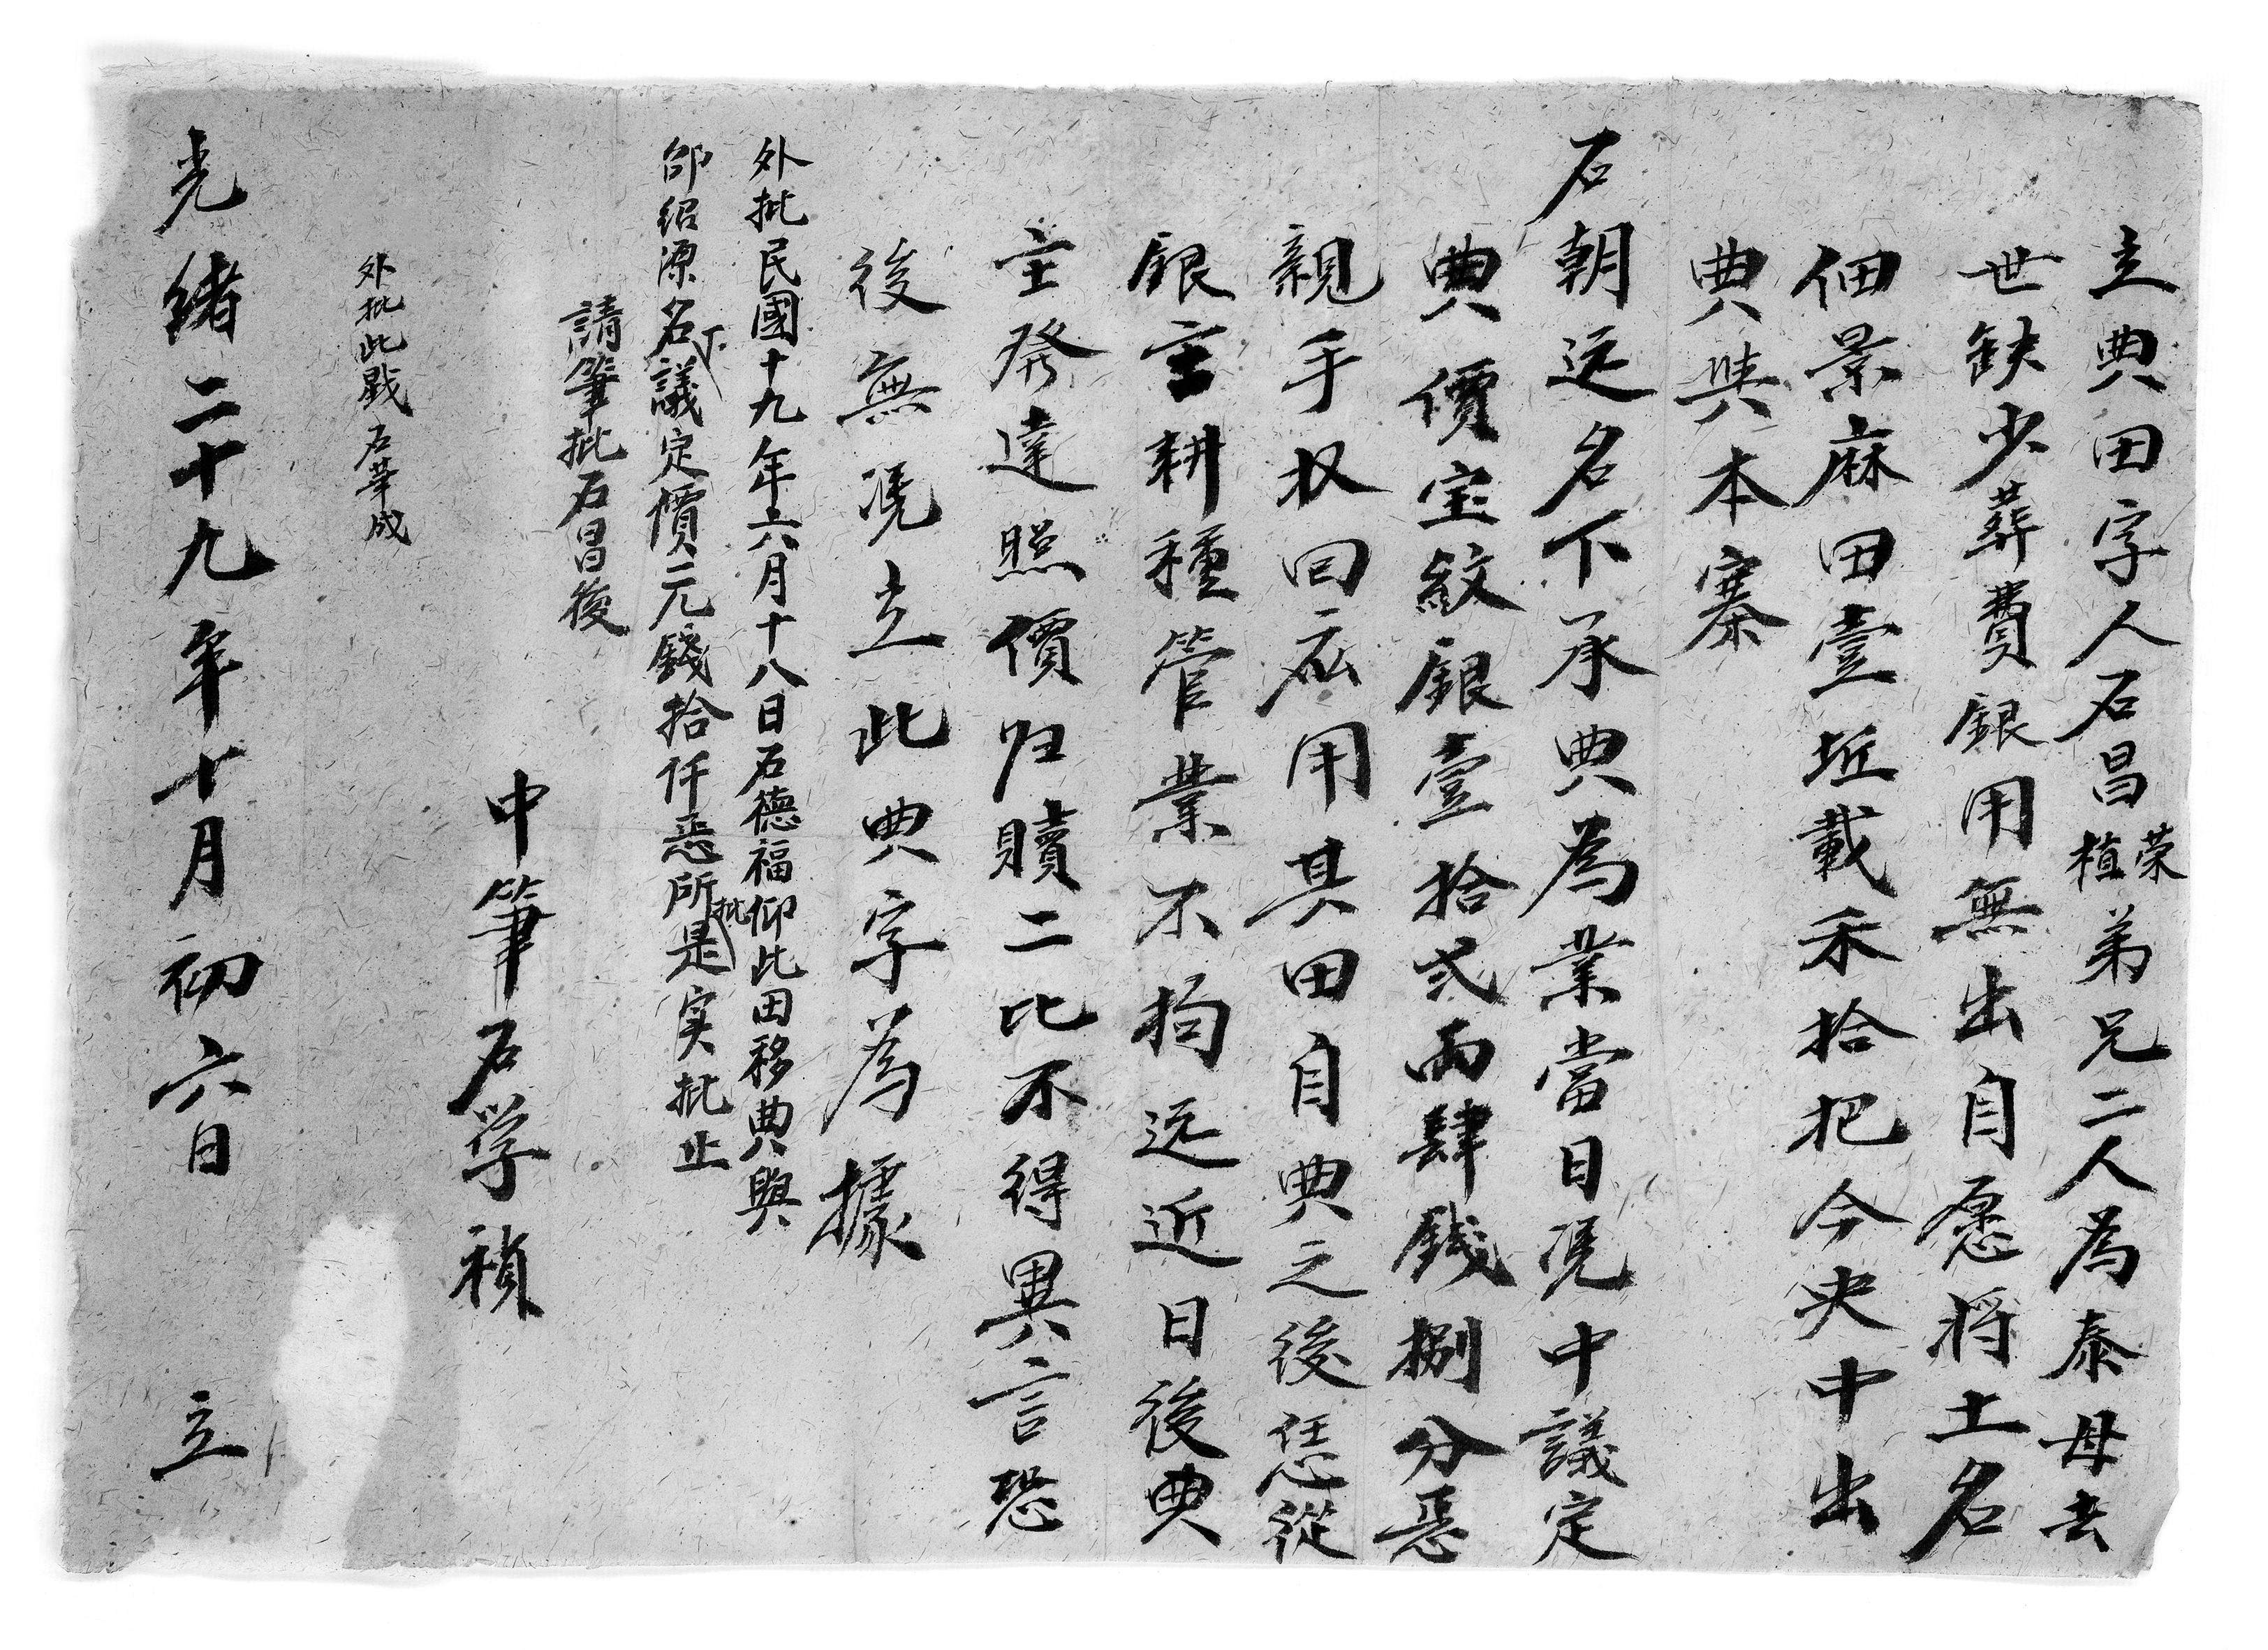 立典田字人石昌荣植弟兄二人為泰母去
世缺少葬費銀用無出自愿將土名
佃景麻田壹坵載禾拾把今央中出
典與本寨
石朝远名下承典為業當日凭中議定
典價宝紋銀壹拾弍両肆錢捌分悪
親手収回応用其田自典之後恁從
銀主耕種管業不拘远近日後典
主發達照價归贖二比不得異言恐
後無凭立此典字為據
外批民國十九年六月十八日石德福仰此田移典與
邰绍源名下議定價元錢拾仟悪所批是实批止
請筆批石昌後
中筆石学禎
外批此戥石華成
光緒二十九年十月初六日 立